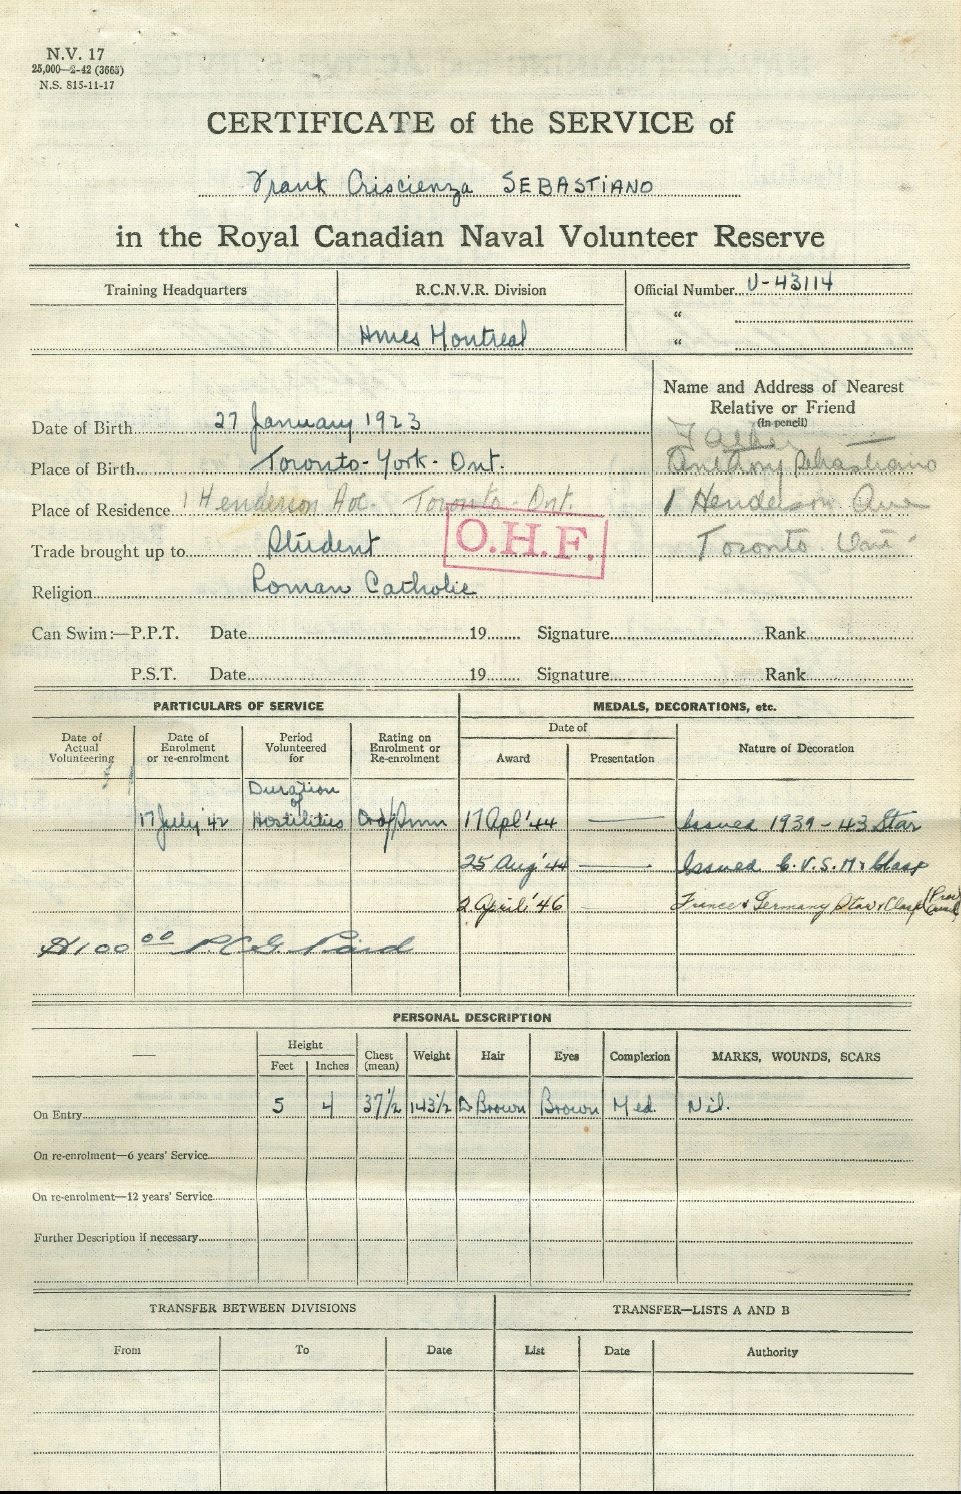 N.V. 17
25,000—2-42 (3665)
N.S. 815-11-17
CERTIFICATE of the SERVICE of
Frank Criscienza SEBASTIANO
in the Royal Canadian Naval Volunteer Reserve
Training Headquarters R.C.N.V.R. Division Official Number V-43114
"
Hmcs Montreal "
Name and Address of Nearest
Relative or Friend
(in pencil)
Father
Date of Birth 27 January 1923
Place of Birth Toronto-York-Ont. Anthony Sebastiano
Place of Residence 1 Henderson Ave. Toronto-Ont. 1 Henderson Ave
O.H.F.
Trade brought up to Student Toronto Ont
Religion Roman Catholic
Can Swim:—P.P.T. Date 19 Signature Rank
P.S.T. Date 19 Signature Rank
PARTICULARS OF SERVICE MEDALS, DECORATIONS, etc.
Date of Actual Volunteering Date of Enrolment or re-enrolment Period Volunteered for Rating on Enrolment or Re-enrolment Date of Award Presentation Nature of Decoration
Duration
of
17 July '42 Hostilities Ord/Smn 17 Apl '44 Issued 1939-43 Star
25 Aug '44 Issued C.V.S.M & Clasp
2 April '46 France & Germany Star & Clasp
$100 00 P.C.G. Paid
PERSONAL DESCRIPTION
— Height Feet Inches Chest (mean) Weight Hair Eyes Complexion MARKS, WOUNDS, SCARS
On Entry 5 4 37½ 143½ D Brown Brown Med. Nil.
On re-enrolment—6 years' Service
On re-enrolment—12 years' Service
Further Description if necessary
TRANSFER BETWEEN DIVISIONS TRANSFER—LISTS A AND B
From To Date List Date Authority